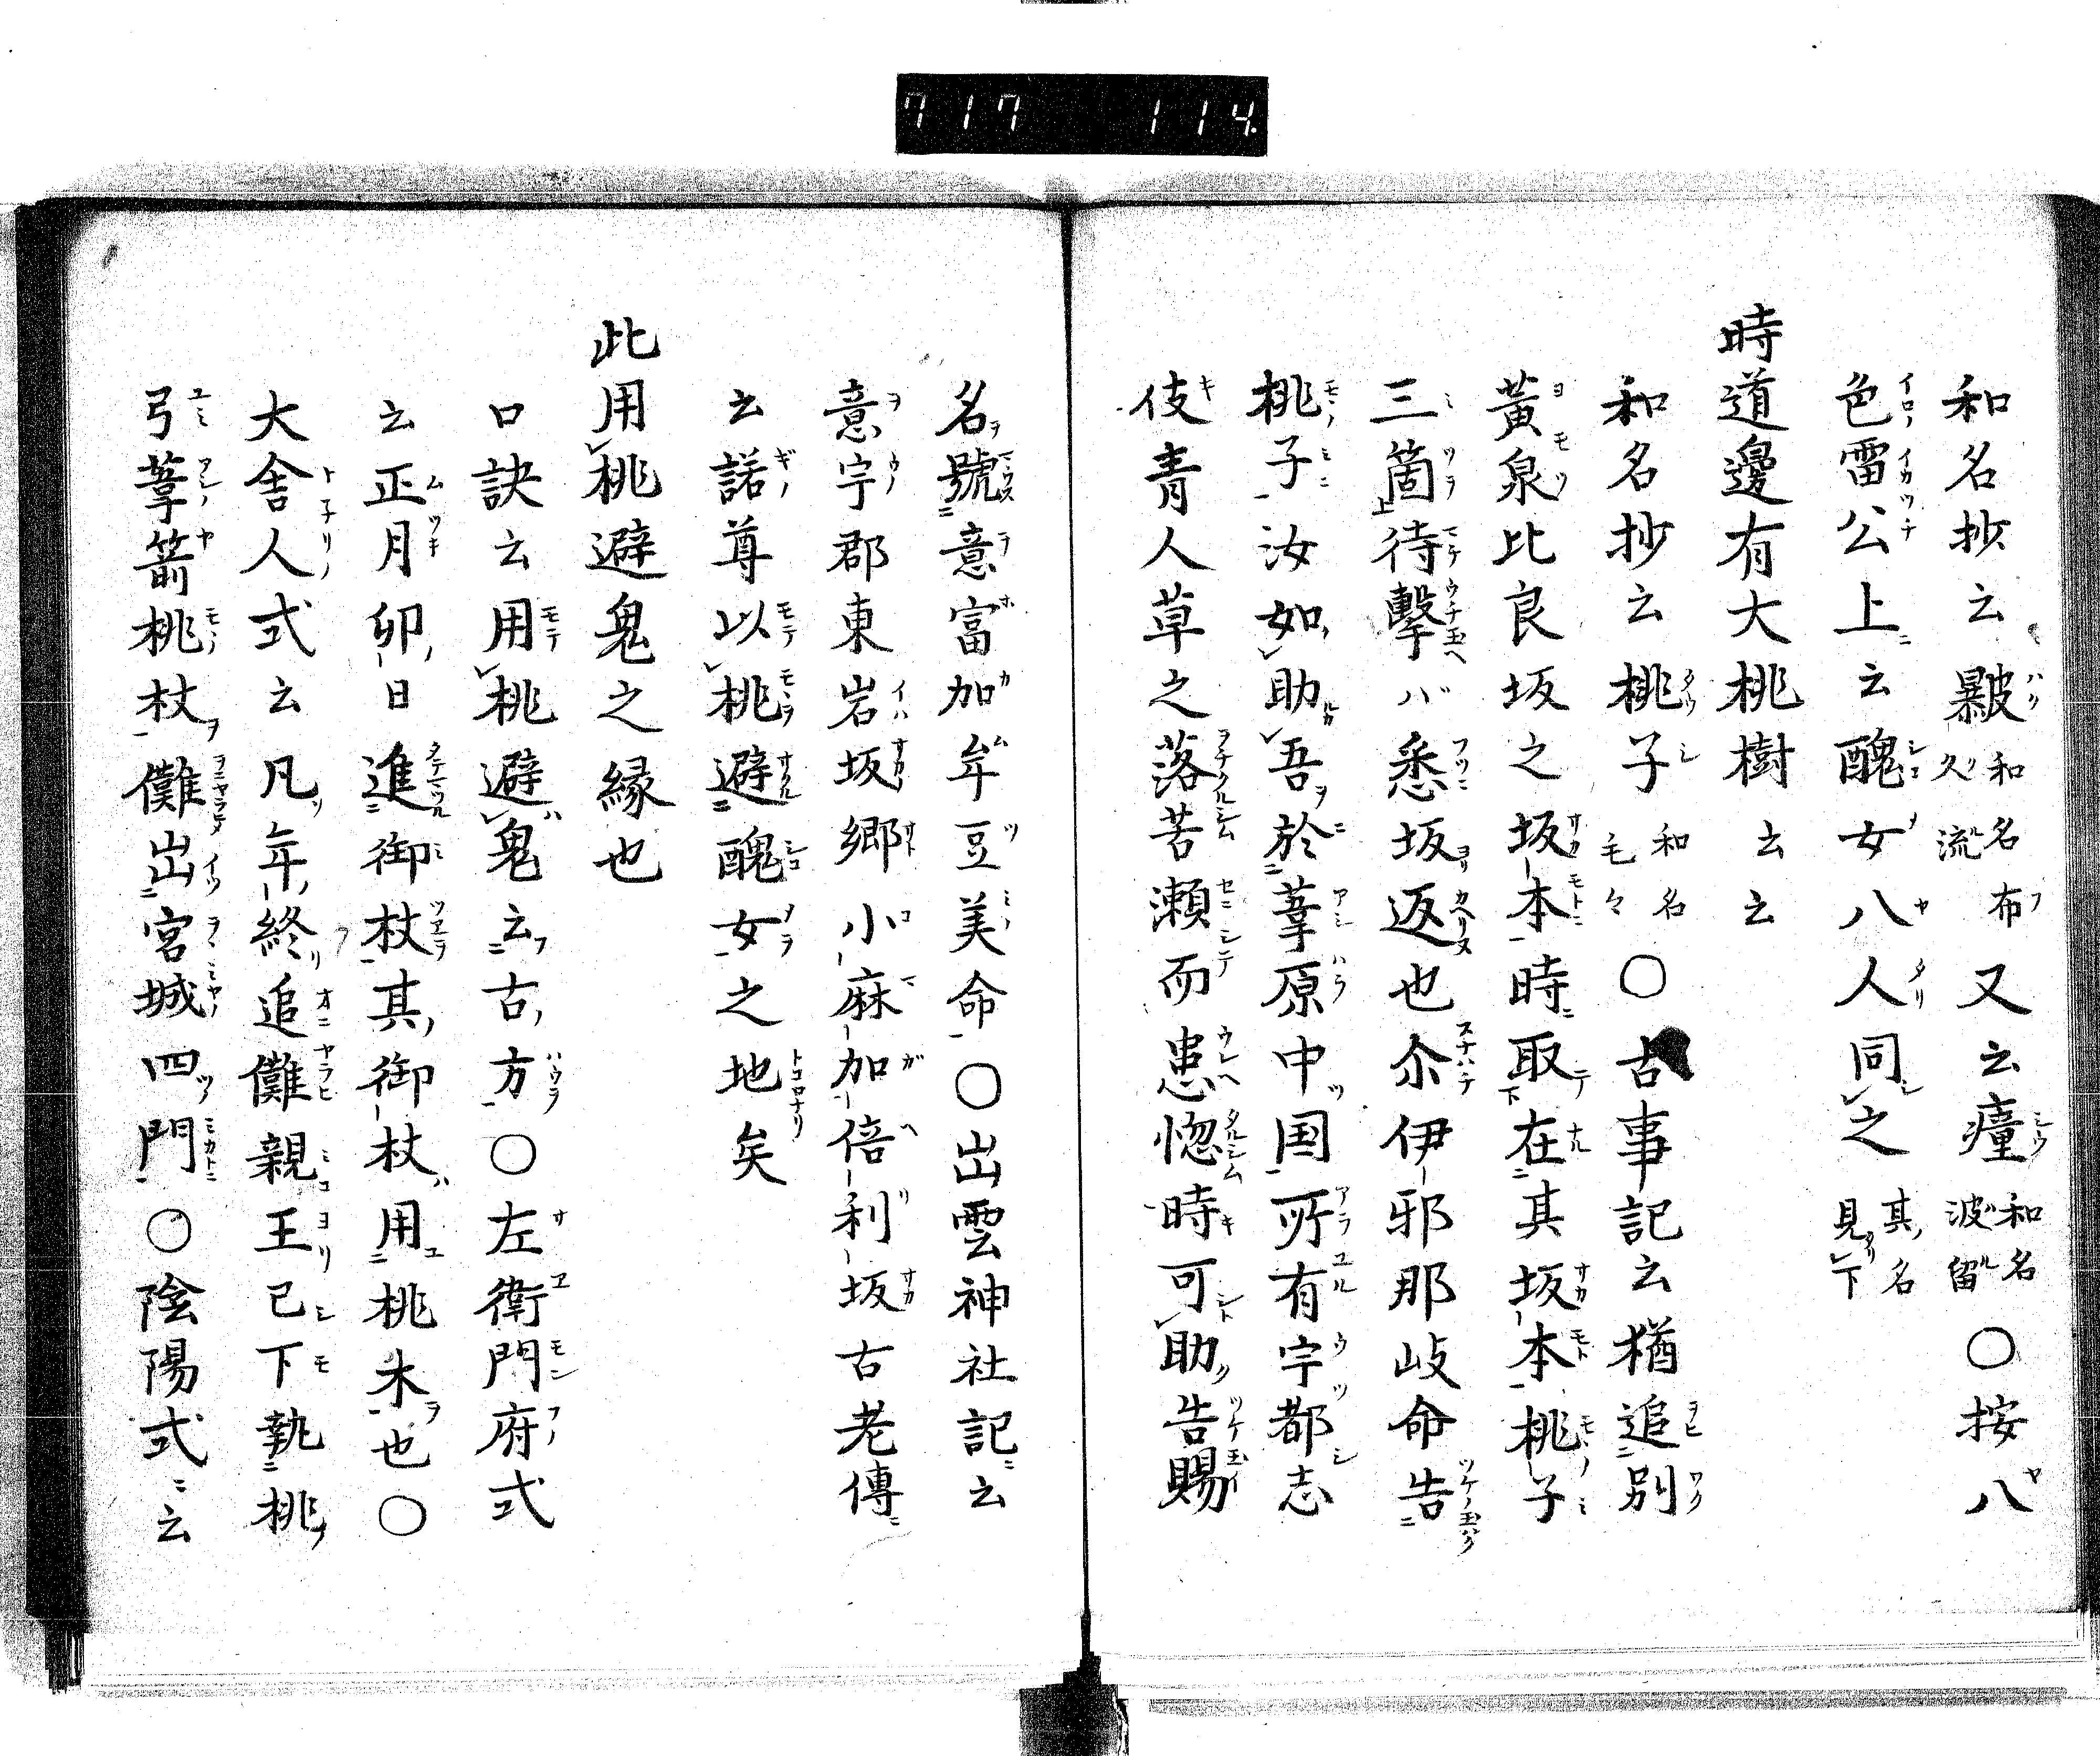 717 114.
和名抄云皸和名布久流又云瘇和名波留○按八
色雷公上云醜女八人同之其名見下
時道邊有大桃樹云云
和名抄云桃子和名毛々○古事記云猶追別
黄泉比良坂之坂本時取在其坂本桃子
三箇待撃バ悉坂返也尒伊邪那岐命告
桃子汝如助吾於葦原中国所有宇都志
伎青人草之落苦瀬而患惚時可助告賜
名號意富加牟豆美命○出雲神社記云
意宇郡東岩坂郷小麻加倍利坂古老傳
云諾尊以桃避醜女之地矣
此用桃避鬼之縁也
口訣云用桃避鬼云古方○左衛門府式
云正月卯日進御杖其御杖用桃木也○
大舎人式云凡年終追儺親王已下執桃
弓葦箭桃杖儺出宮城四門○陰陽式云